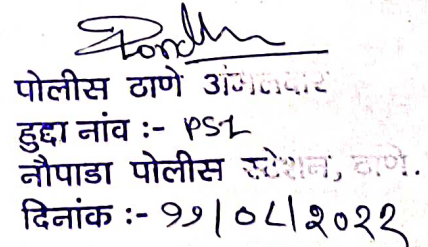 पोलीस ठाणे अंमलदार
हुद्दा नांव :- PSI
नौपाडा पोलीस स्टेशन, ठाणे.
दिनांक :- ११/०८/२०२२